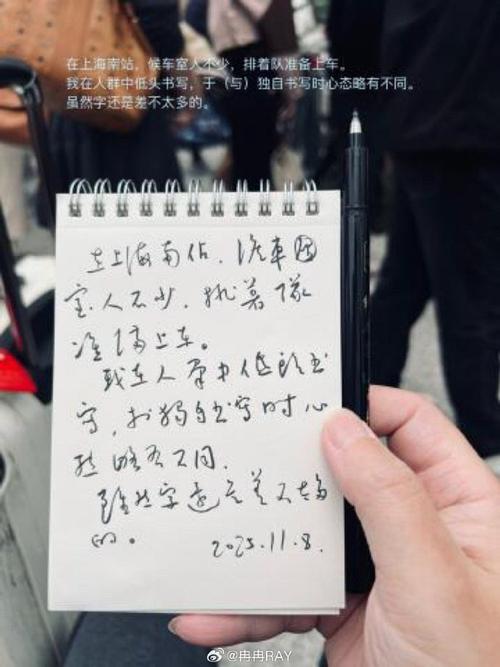 在上海南站，候车室人不少，排着队准备上车。
我在人群中低头书写，于（与）独自书写时心态略有不同。
虽然字还是差不太多的。
在上海南站，候車
室人不少，排着隊
准备上车。
我在人群中低头书
写，于独自书写时心
态略有不同。
雖然字还是差不太多
的。
2025.11.8.
@冉冉RAY